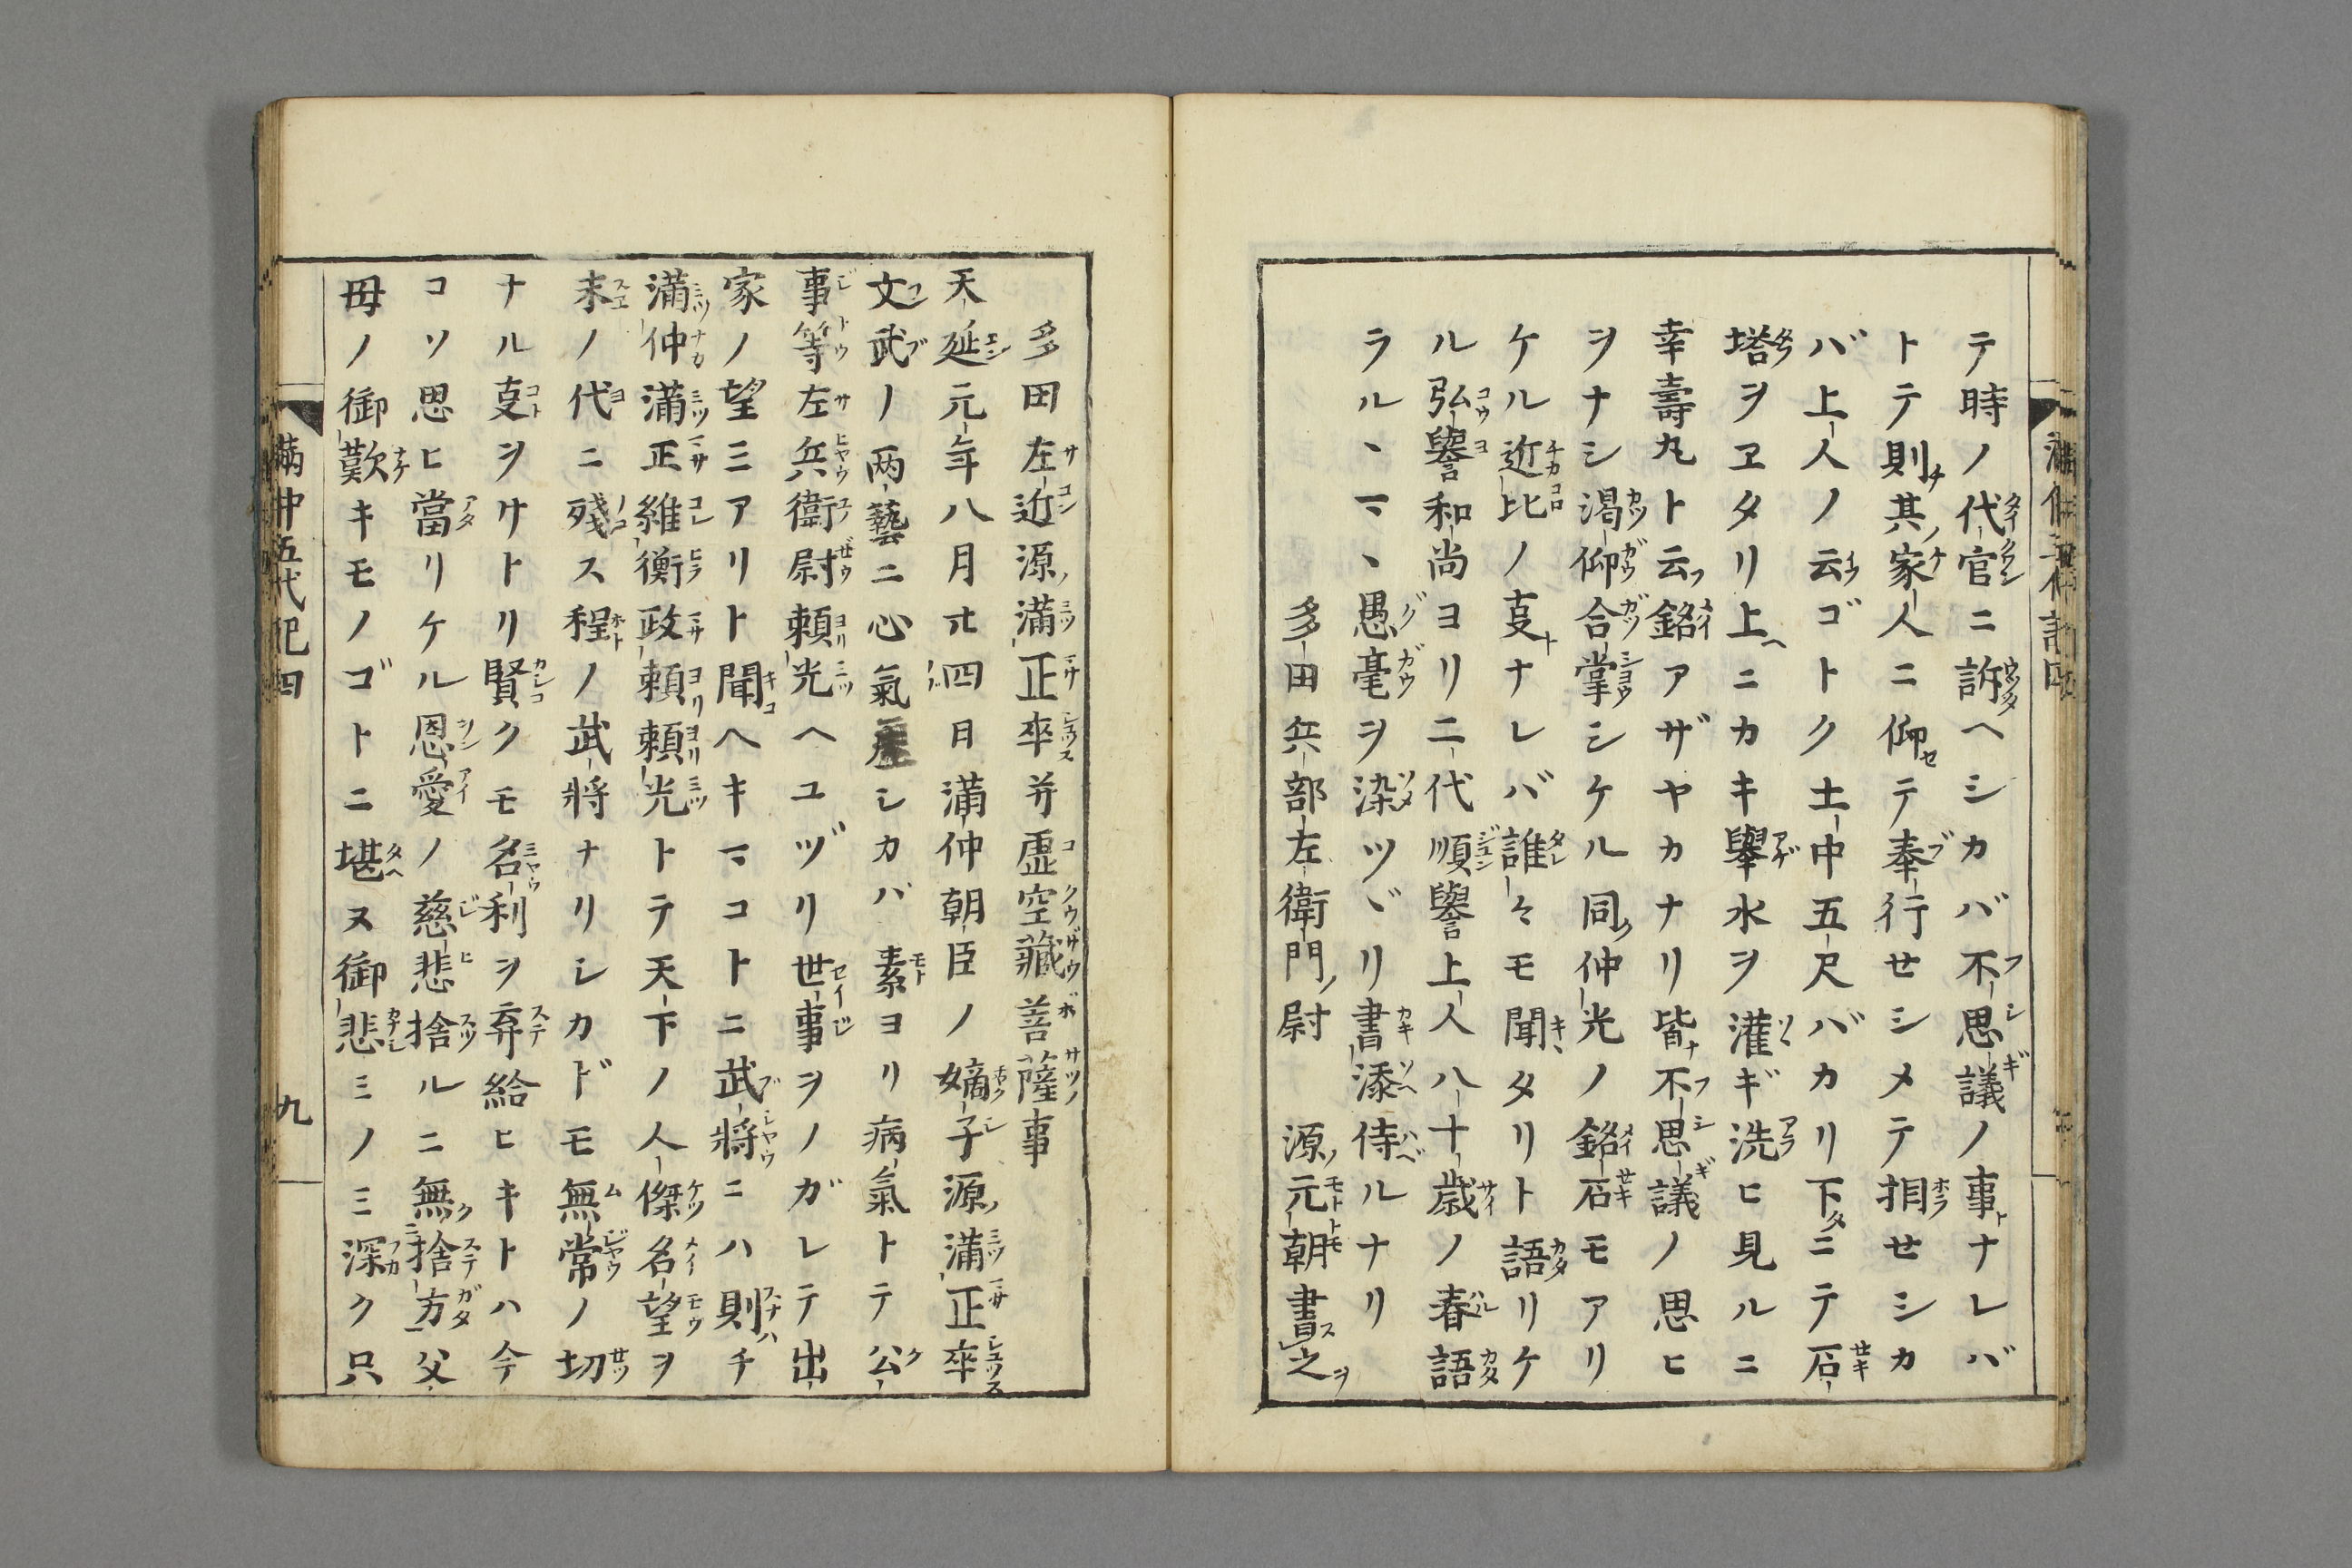 テ時ノ代官ニ訴ヘシカバ不思議ノ事ナレバ
トテ則其家人ニ仰テ奉行せシメテ掘せシカ
バ上人ノ云ゴトク土中五尺バカリ下ニテ石
塔ヲヱタリ上ニカキ擧水ヲ灌ギ洗ヒ見ルニ
幸壽丸ト云銘アザヤカナリ皆不思議ノ思ヒ
ヲナシ渇仰合掌シケル同仲光ノ銘石モアリ
ケル近比ノ叓ナレバ誰々モ聞タリト語リケ
ル弘譽和尚ヨリ二代順譽上人八十歳ノ春語
ラルヽマヽ愚毫ヲ染ツヾリ書添侍ルナリ
多田兵部左衛門尉　源元朝書之
多田左近源満正卒并虚空藏菩薩事
天延元年八月廿四日滿仲朝臣ノ嫡子源滿正卒
文武ノ两藝ニ心氣シカバ素ヨリ病氣トテ公
事等左兵衛尉頼光ヘユヅリ世事ヲノガレテ出
家ノ望ミアリト聞ヘキマコトニ武將ニハ則チ
滿仲滿正維衡政頼頼光トテ天下ノ人傑名望ヲ
末ノ代ニ殘ス程ノ武將ナリシカドモ無常ノ切
ナル叓ヲサトリ賢クモ名利ヲ弃給ヒキトハ今
コソ思ヒ當リケル恩愛ノ慈悲捨ルニ無捨方父
母ノ御歎キモノゴトニ堪ヌ御悲ミノミ深ク只
滿仲五代記四
九